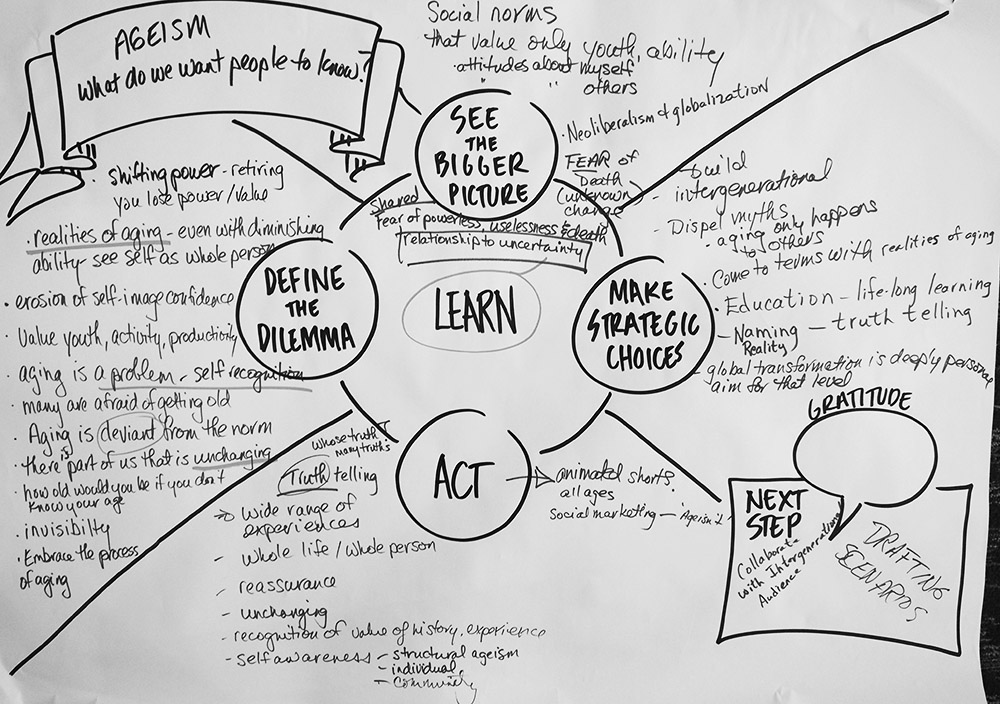 AGEISM
What do we want people to know?
Social norms
that value only youth, ability
· attitudes about myself
" " others
SEE
THE
BIGGER
PICTURE
· Neoliberalism & globalization
FEAR of
Death
(unknown)
change
Shared
fear of powerless, uselessness & death
relationship to uncertainty
· shifting power - retiring
you lose power/value
· realities of aging - even with diminishing
ability - see self as whole person
· erosion of self-image confidence
· Value youth, activity, productivity
· aging is a problem - self recognition
· many are afraid of getting old
· Aging is deviant from the norm
· there is part of us that is unchanging
· how old would you be if you don't
know your age
· invisibilty
· Embrace the process
of aging
DEFINE
THE
DILEMMA
LEARN
MAKE
STRATEGIC
CHOICES
- build
intergenerational
- Dispel myths
· aging only happens
to others
- Come to terms with realities of aging
· Education - life-long learning
- Naming - truth telling
Reality
- global transformation is deeply personal
aim for that level
ACT
animated shorts
all ages
Social marketing - Ageism
whose truth?
many truths
Truth telling
wide range of
experiences
- whole life / whole person
- reassurance
- unchanging
- recognition of value of history, experience
- self awareness - structural ageism
- individual
- community
GRATITUDE
NEXT
STEP
Collaborate
with Intergenerational
Audience
DRAFTING
SCENARIOS